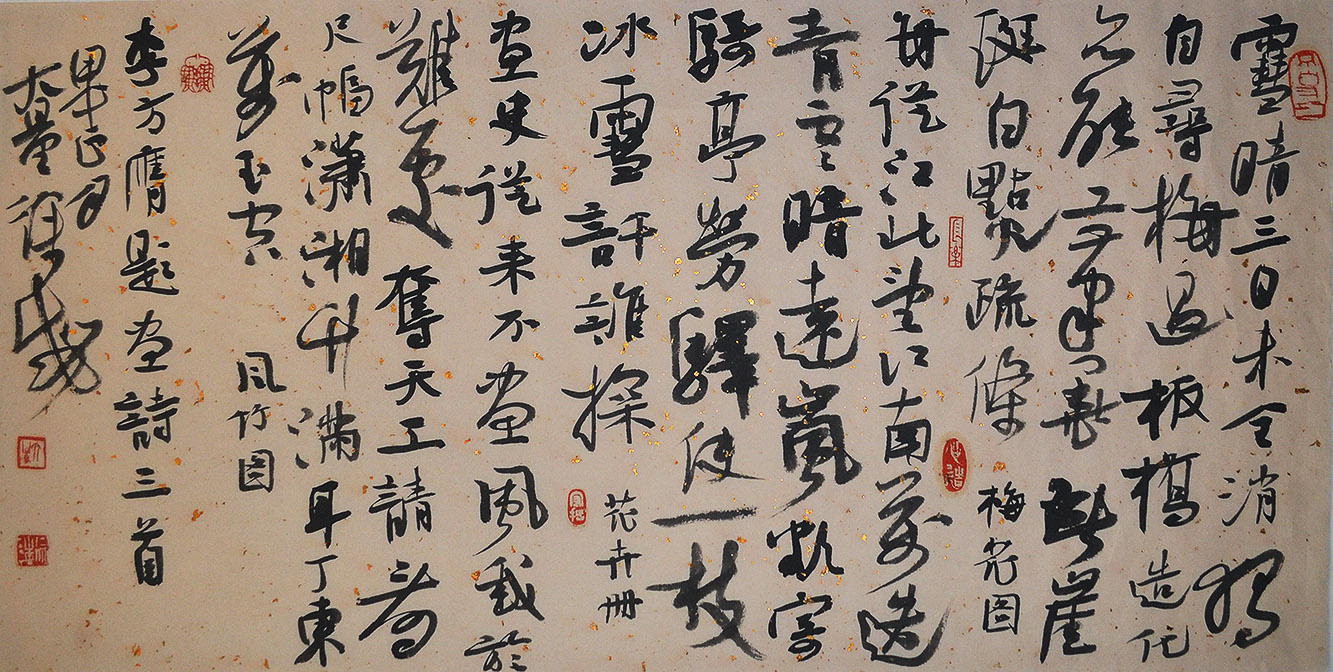 雪晴三日未全消獨
自尋梅過板橋造化
能筆崖
斑白點疏條 梅花图
每從江北望江南萬迭
青雲遠嵐欲寄
亭勞驛使一枝
冰雪許誰探 花卉册
畫史從来不畫風我於
難處奪天工請看
尺幅瀟湘竹滿耳丁東
萬玉空 风竹图
李方膺題畫詩三首
甲午正月